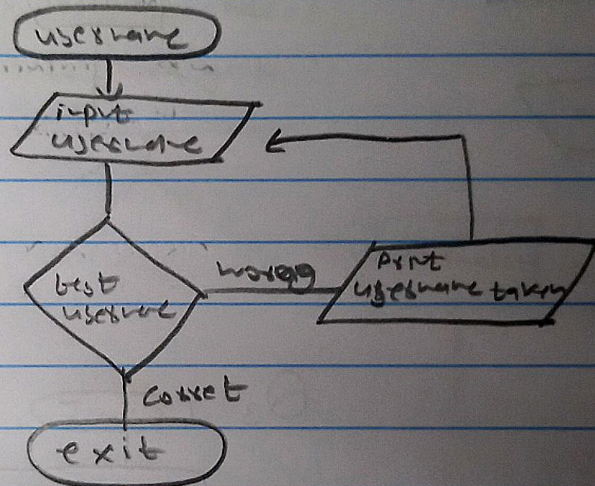 username
input
username
test
username
worgg
print
username taken
corret
exit